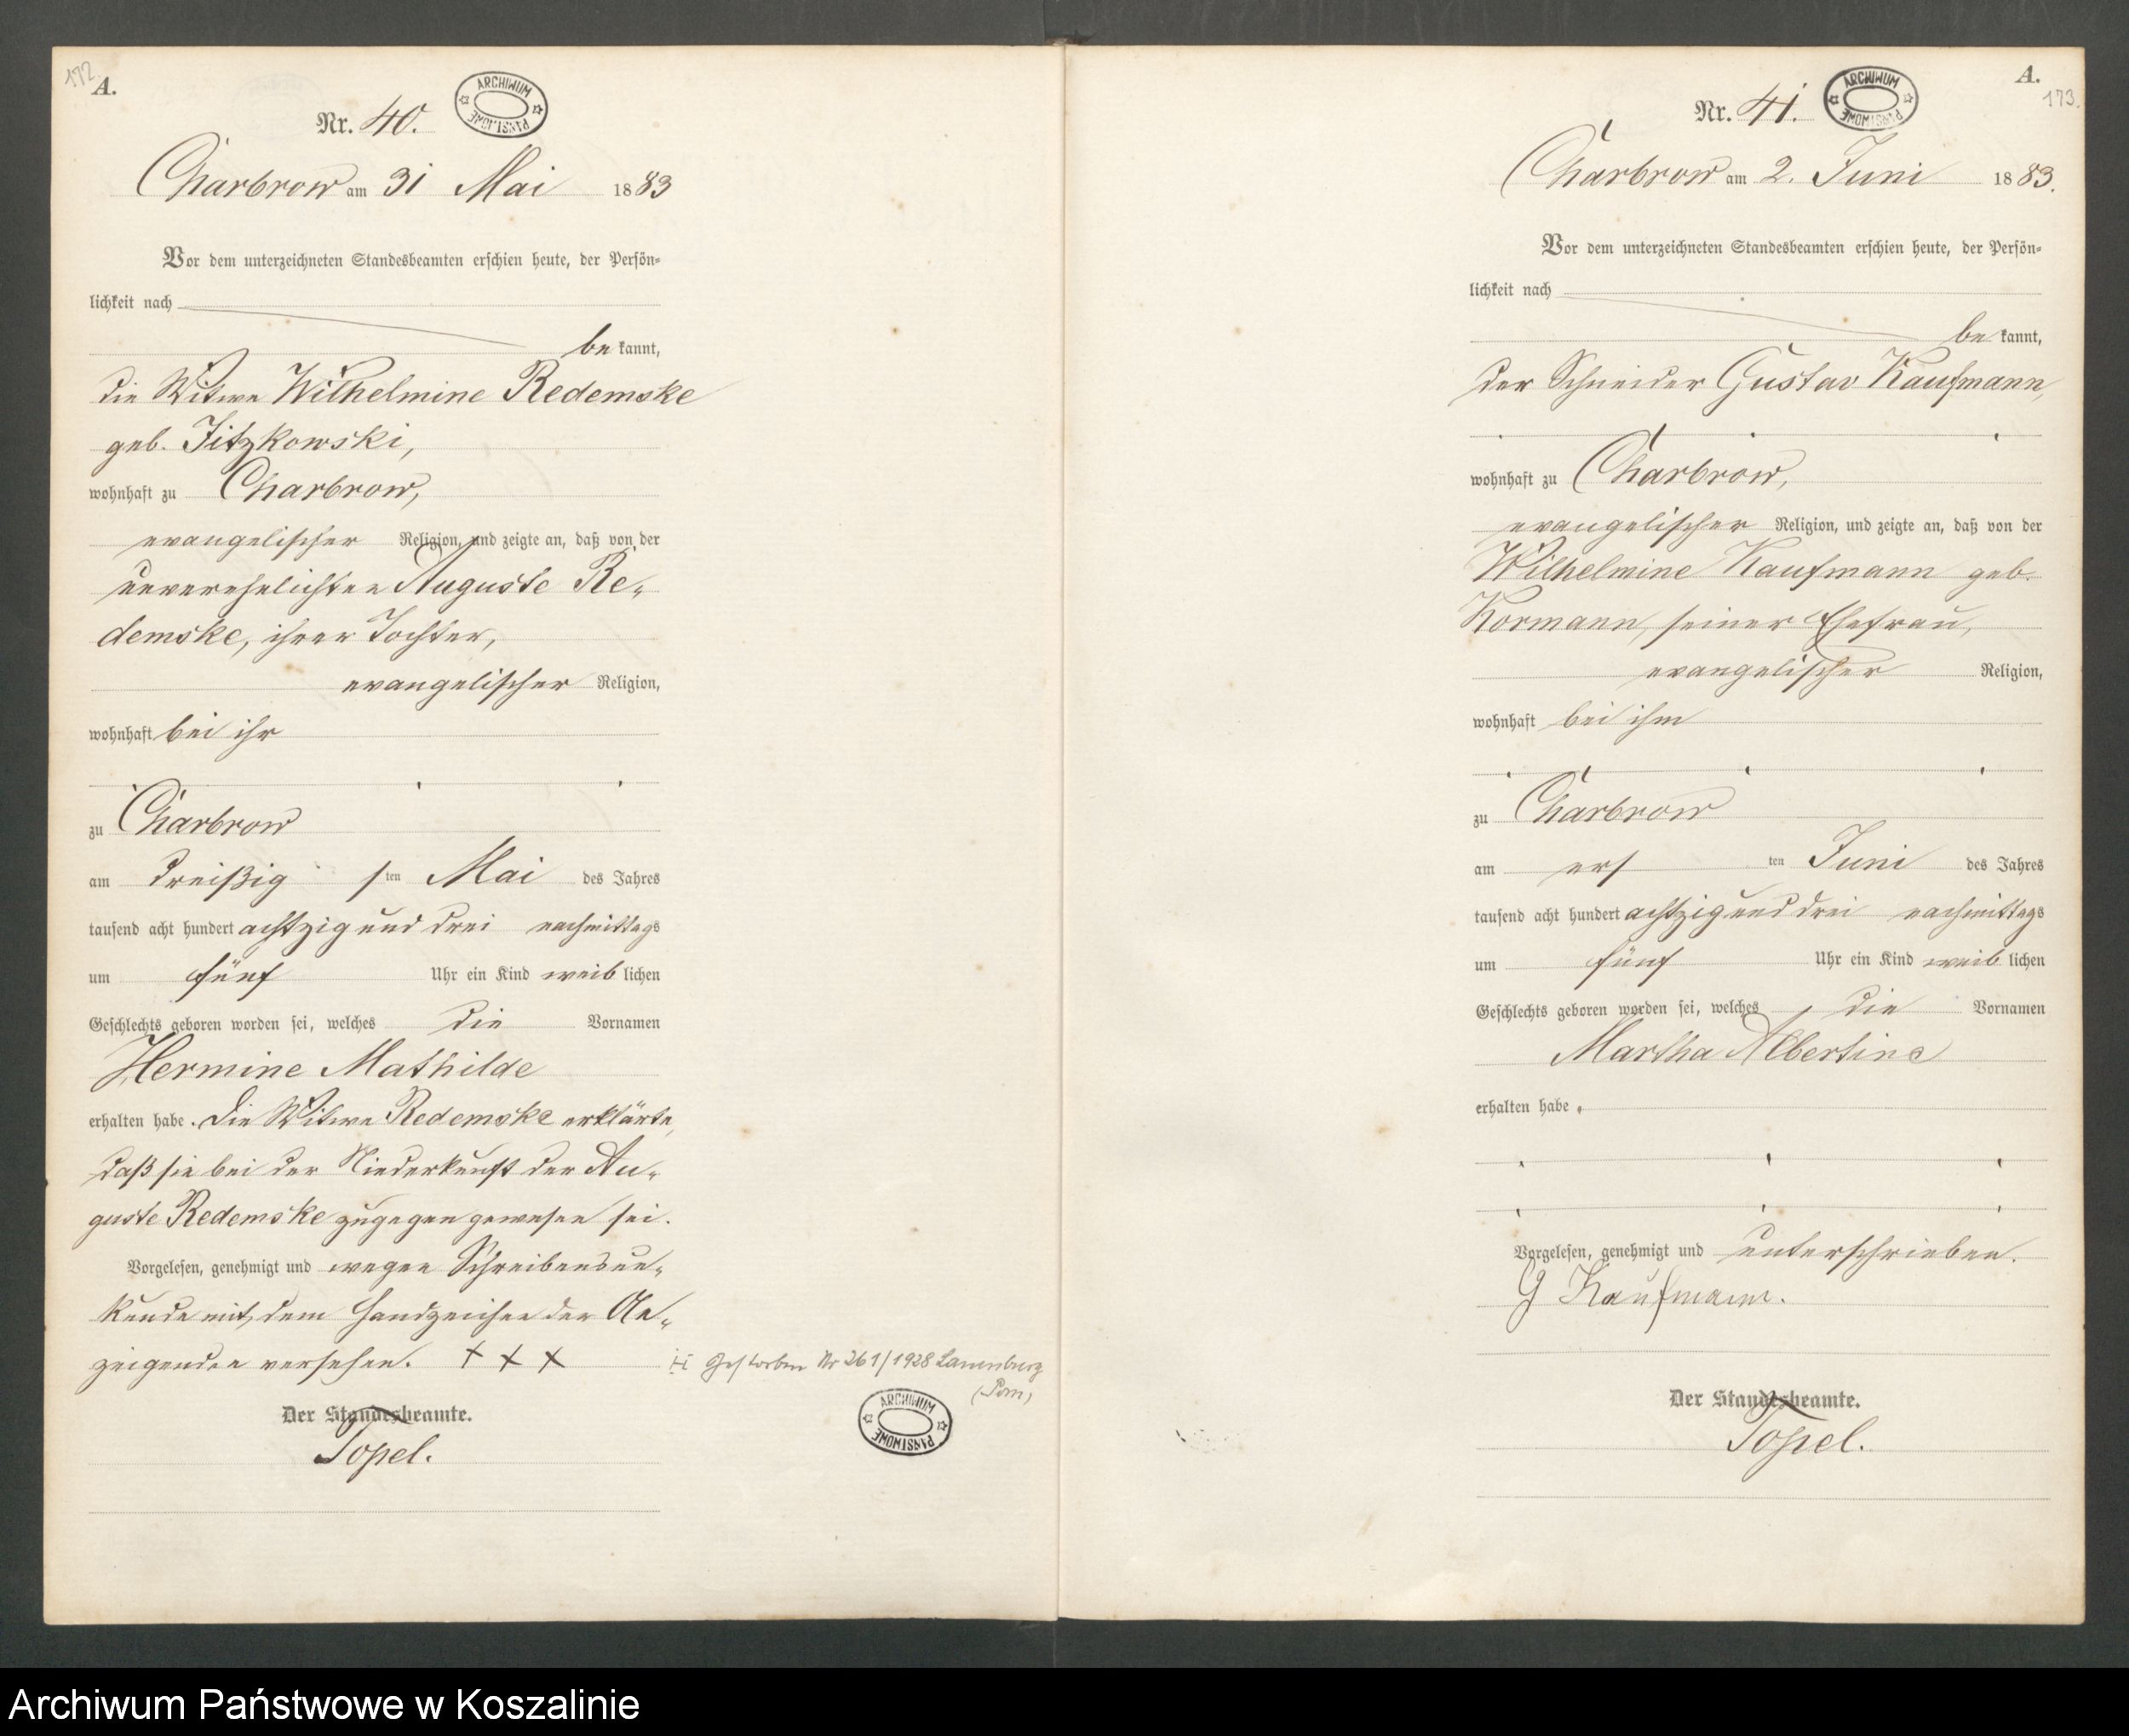 172.
A.
Nr. 40.
ARCHIWUM PAŃSTWOWE
Charbrow am 31 Mai 1883
Vor dem unterzeichneten Standesbeamten erschien heute, der Persön-
lichkeit nach
be kannt,
die Witwe Wilhelmine Redemske
geb. Jitzkowski,
wohnhaft zu Charbrow,
evangelischer Religion, und zeigte an, daß von der
unverehelichten Auguste Re-
demske, ihrer Tochter,
evangelischer Religion,
wohnhaft bei ihr
zu Charbrow
am dreißig s ten Mai des Jahres
tausend acht hundert achtzig und drei nachmittags
um fünf Uhr ein Kind weib lichen
Geschlechts geboren worden sei, welches die Vornamen
Hermine Mathilde
erhalten habe. Die Witwe Redemske erklärte,
daß sie bei der Niederkunft der Au-
guste Redemske zugegen gewesen sei.
Vorgelesen, genehmigt und wegen Schreibensun-
kunde mit dem Handzeichen der An-
zeigenden versehen. + + +
Gestorben Nr 261/1928 Lauenburg
(Pom)
ARCHIWUM PAŃSTWOWE
Der Standesbeamte.
Topel.
A.
173.
Nr. 41.
ARCHIWUM PAŃSTWOWE
Charbrow am 2. Juni 1883.
Vor dem unterzeichneten Standesbeamten erschien heute, der Persön-
lichkeit nach
be kannt,
der Schneider Gustav Kaufmann,
wohnhaft zu Charbrow,
evangelischer Religion, und zeigte an, daß von der
Wilhelmine Kaufmann geb.
Kormann, seiner Ehefrau,
evangelischer Religion,
wohnhaft bei ihm
zu Charbrow
am ers ten Juni des Jahres
tausend acht hundert achtzig und drei nachmittags
um fünf Uhr ein Kind weib lichen
Geschlechts geboren worden sei, welches die Vornamen
Martha Albertine
erhalten habe.
Vorgelesen, genehmigt und unterschrieben.
G Kaufmann.
Der Standesbeamte.
Topel.
Archiwum Państwowe w Koszalinie